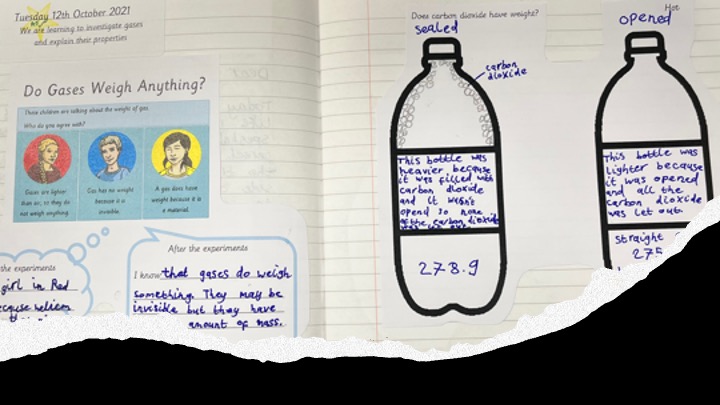 Tuesday 12th October 2021
We are learning to investigate gases
and explain their properties
Do Gases Weigh Anything?
These children are talking about the weight of gas.
Who do you agree with?
Gases are lighter
than air, so they do
not weigh anything.
Gas has no weight
because it is
invisible.
A gas does have
weight because it is
a material.
the experiments
girl in Red
After the experiments
I know that gases do weigh
something. They may be
invisible but they have
amount of mass.
Does carbon dioxide have weight?
sealed
carbon
dioxide
This bottle was
heavier because
it was filled with
carbon dioxide
and it wasn't
opend so none
of the carbon dioxide
278.9
Hot
opened
This bottle was
lighter because
it was opened
and all the
carbon dioxide
was let out.
straight
275